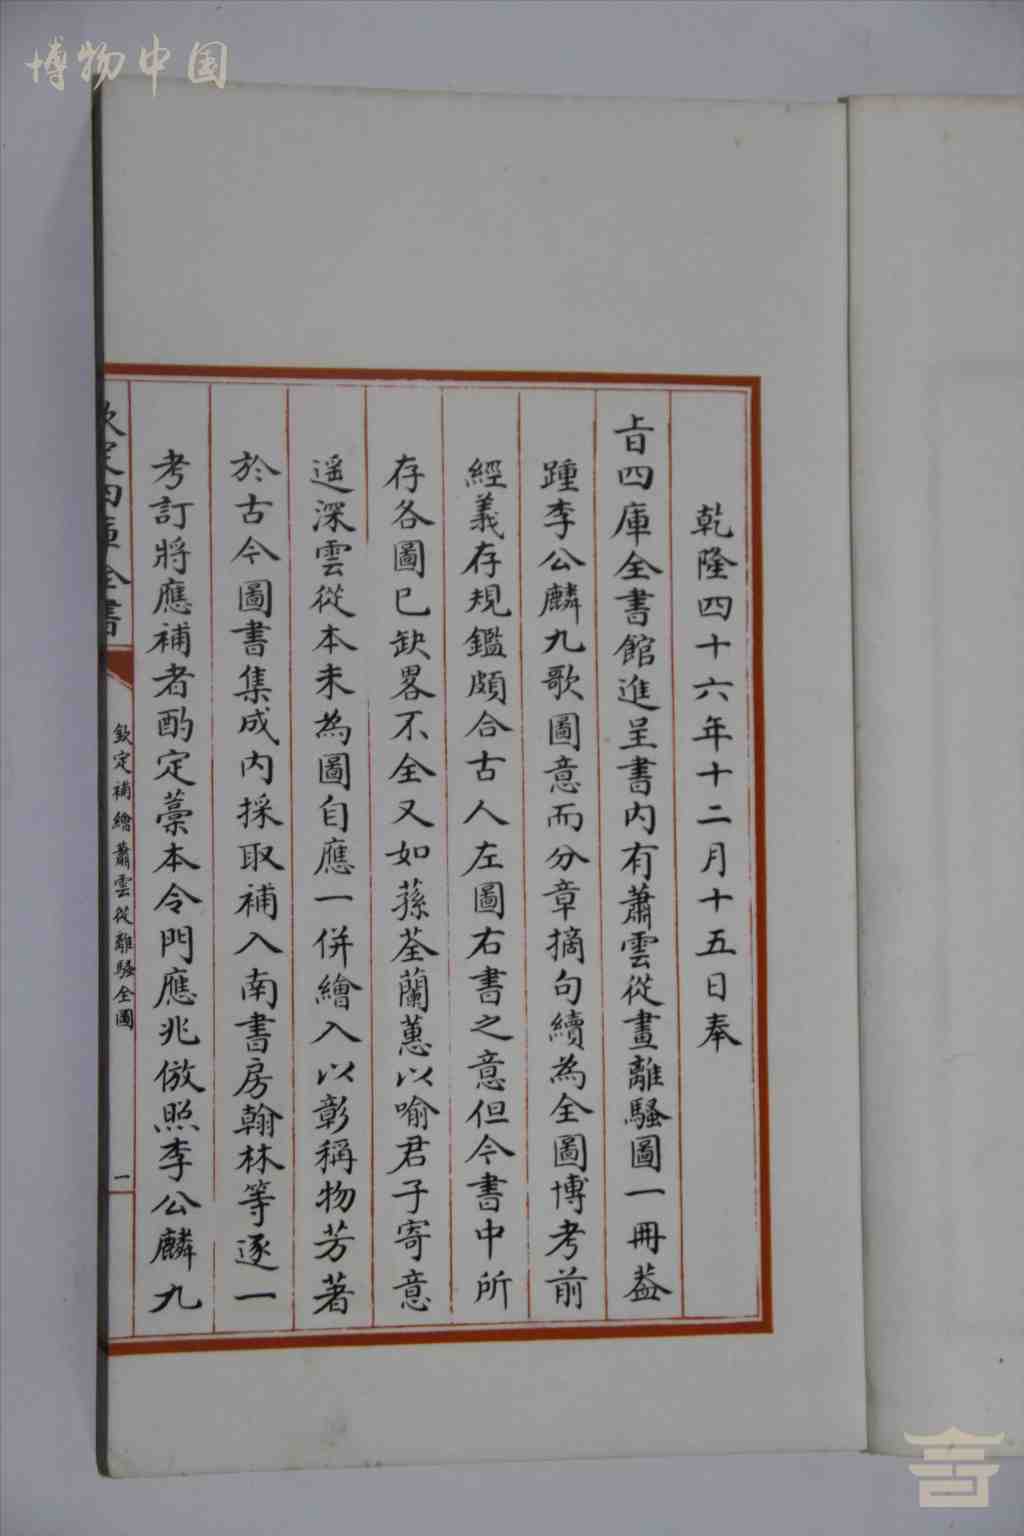 博物中国
乾隆四十六年十二月十五日奉
旨四庫全書館進呈書内有蕭雲從畫離騷圖一冊葢
踵李公麟九歌圖意而分章摘句續為全圖博考前
經義存規鑑頗合古人左圖右書之意但今書中所
存各圖已缺畧不全又如蓀荃蘭蕙以喻君子寄意
遥深雲從本未為圖自應一併繪入以彰稱物芳著
於古今圖書集成内採取補入南書房翰林等逐一
考訂將應補者酌定藁本令門應兆倣照李公麟九
欽定四庫全書
欽定補繪蕭雲從離騷全圖
一